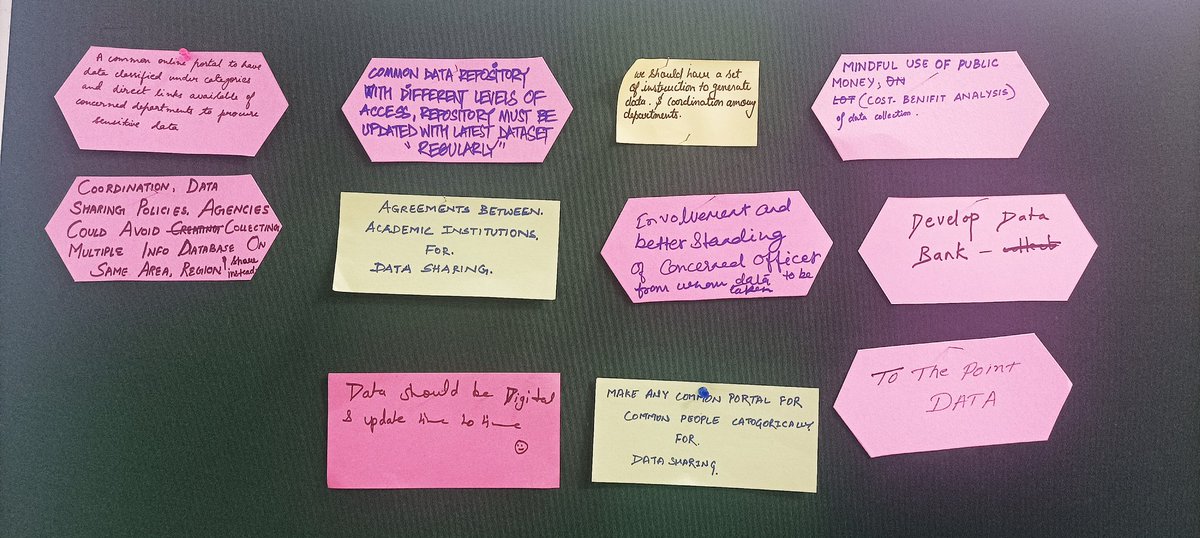 A common online portal to have
data classified under categories
and direct links available of
concerned departments to procure
sensitive data
COMMON DATA REPOSITORY
WITH DIFFERENT LEVELS OF
ACCESS, REPOSITORY MUST BE
UPDATED WITH LATEST DATASET
"REGULARLY"
we should have a set
of instruction to generate
data. & coordination among
departments.
MINDFUL USE OF PUBLIC
MONEY,
(COST-BENIFIT ANALYSIS)
of data collection.
COORDINATION, DATA
SHARING POLICIES. AGENCIES
COULD AVOID COLLECTING
MULTIPLE INFO DATABASE ON
SAME AREA, REGION! Share
instead
AGREEMENTS BETWEEN.
ACADEMIC INSTITUTIONS.
FOR.
DATA SHARING.
Involvement and
better standing
of Concerned Officer
from whom data to be
taken
Develop Data
Bank –
Data should be Digital
& update time to time
MAKE ANY COMMON PORTAL FOR
COMMON PEOPLE CATOGORICALLY
FOR.
DATA SHARING.
To The Point
DATA